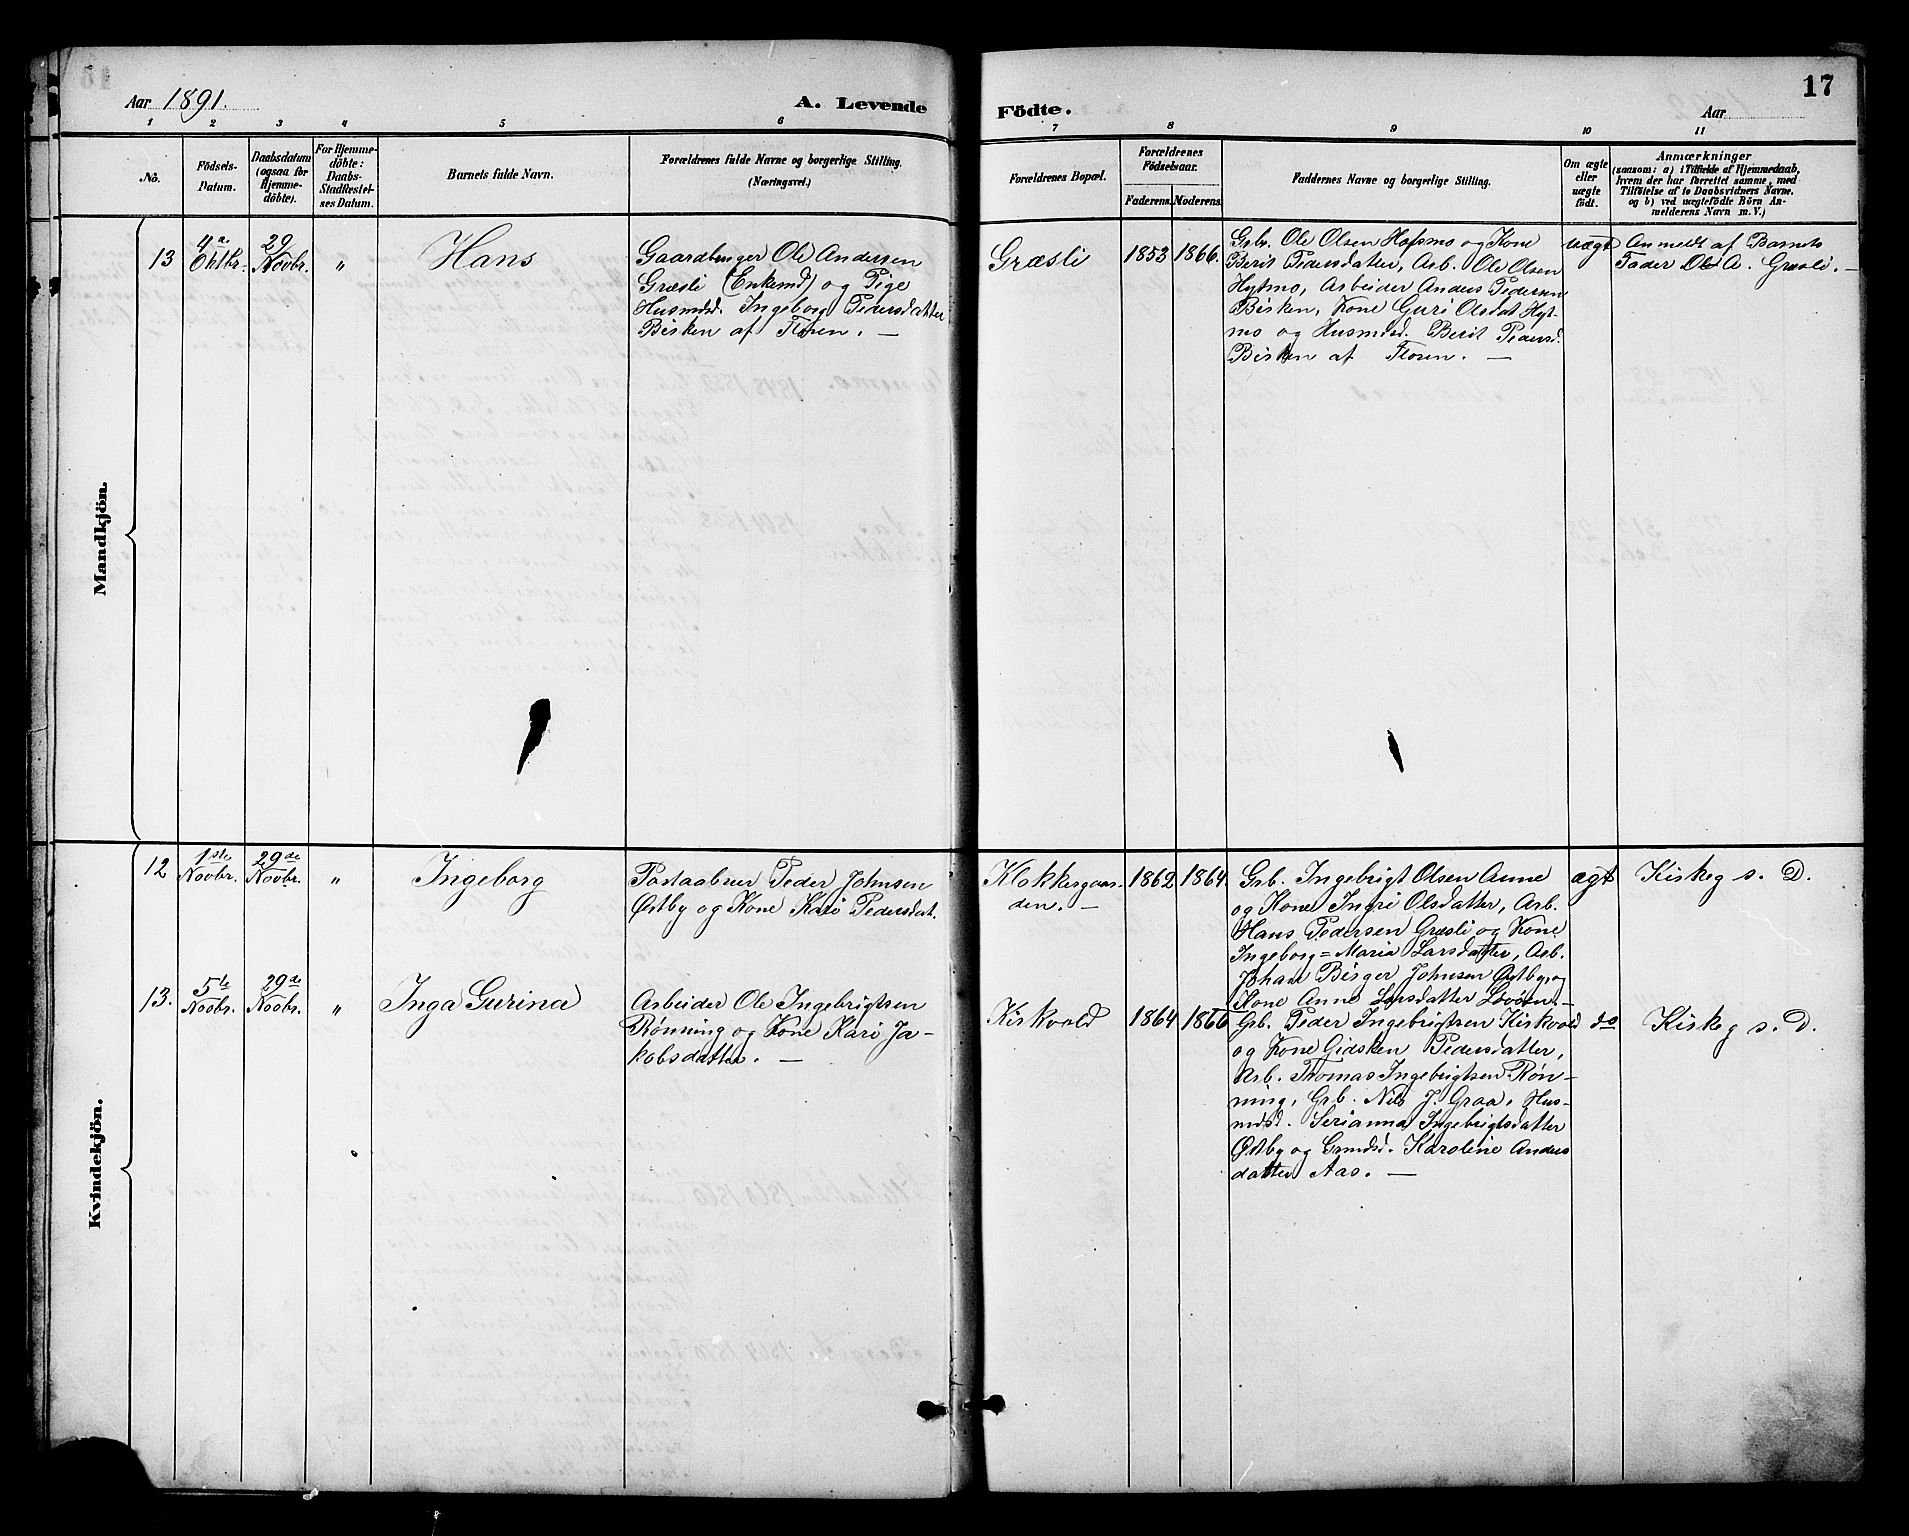 Aar 1891.
A. Levende
Födte.
Aar
17
1 2 3 4 5 6 7 8 9 10 11
No.
Födsels-
Datum.
Daabsdatum
(ogsaa for
Hjemme-
döbte).
For Hjemme-
döbte:
Daabs-
Stadfæstel-
ses Datum.
Barnets fulde Navn.
Forældrenes fulde Navne og borgerlige Stilling.
(Næringsvei.)
Forældrenes Bopæl.
Forældrenes
Födselsaar.
Faderens. Moderens.
Faddernes Navne og borgerlige Stilling.
Om ægte
eller
uægte
födt.
Anmærkninger
(saasom: a) i Tilfælde af Hjemmedaab,
hvem der har forrettet samme, med
Tilföielse af to Daabsvidners Navne,
og b) ved uægtefödte Börn An-
melderens Navn m. V.)
Mandkjön.
13
Oktbr.
29
Novbr.
"
Hans
Gaardbruger Ole Andersen
Græsli (Enkemd) og Pige
Husmdsd. Ingeborg Pedersdatter
Bisken af Floren. —
Græsli
1853
1866.
Grb. Ole Olsen Hofsmo og Kone
Berit Pedersdatter, Arb. Ole Olsen
Hytmo, Arbeider Anders Pedersen
Bisken, Kone Guri Olsdat Hyt-
mo og Husmdsd. Berit Pedersd.
Bisken af Floren. —
uægt
Anmeldt af Barnets
Fader Ole A. Græsli. —
Kvindekjön.
12
1ste
Novbr.
29de
Novbr.
"
Ingeborg
Postaabner Peder Johnsen
Østby og Kone Kari Pedersdat.
Klokkergaar-
den. —
1862
1864.
Grb. Ingebrigt Olsen Aune
og Kone Ingri Olsdatter, Arb.
Hans Pedersen Græsli og Kone
Ingeborg=Maria Larsdatter, Arb.
Johan Birger Johnsen Østby og
Kone Anne Larsdatter Lövöen. —
ægt
Kirkeg s. D.
13.
5te
Novbr.
29de
Novbr.
"
Inga Gurina
Arbeider Ole Ingebrigtsen
Rönning og Kone Kari Ja-
kobsdatter. —
Kirkvold
1864
1866
Grb. Peder Ingebrigtsen Kirkvold
og Kone Gidsken Pedersdatter,
Arb. Thomas Ingebrigtsen Rön-
ning, Grb. Nils J. Graa, Hus-
mdsd. Serianna Ingebrigtsdatter
Østby og Grmdsd. Karoline Anders
datter Aas. —
do
Kirkeg s. D.